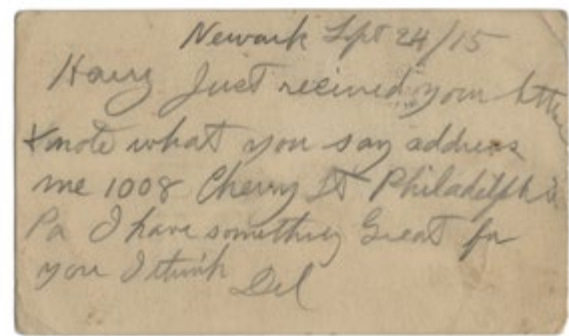 Newark Spt 24/15
Harry Just recieved your letter
& note what you say address
me 1008 Cherry St Philadelphia
Pa I have something Great for
you I think Del